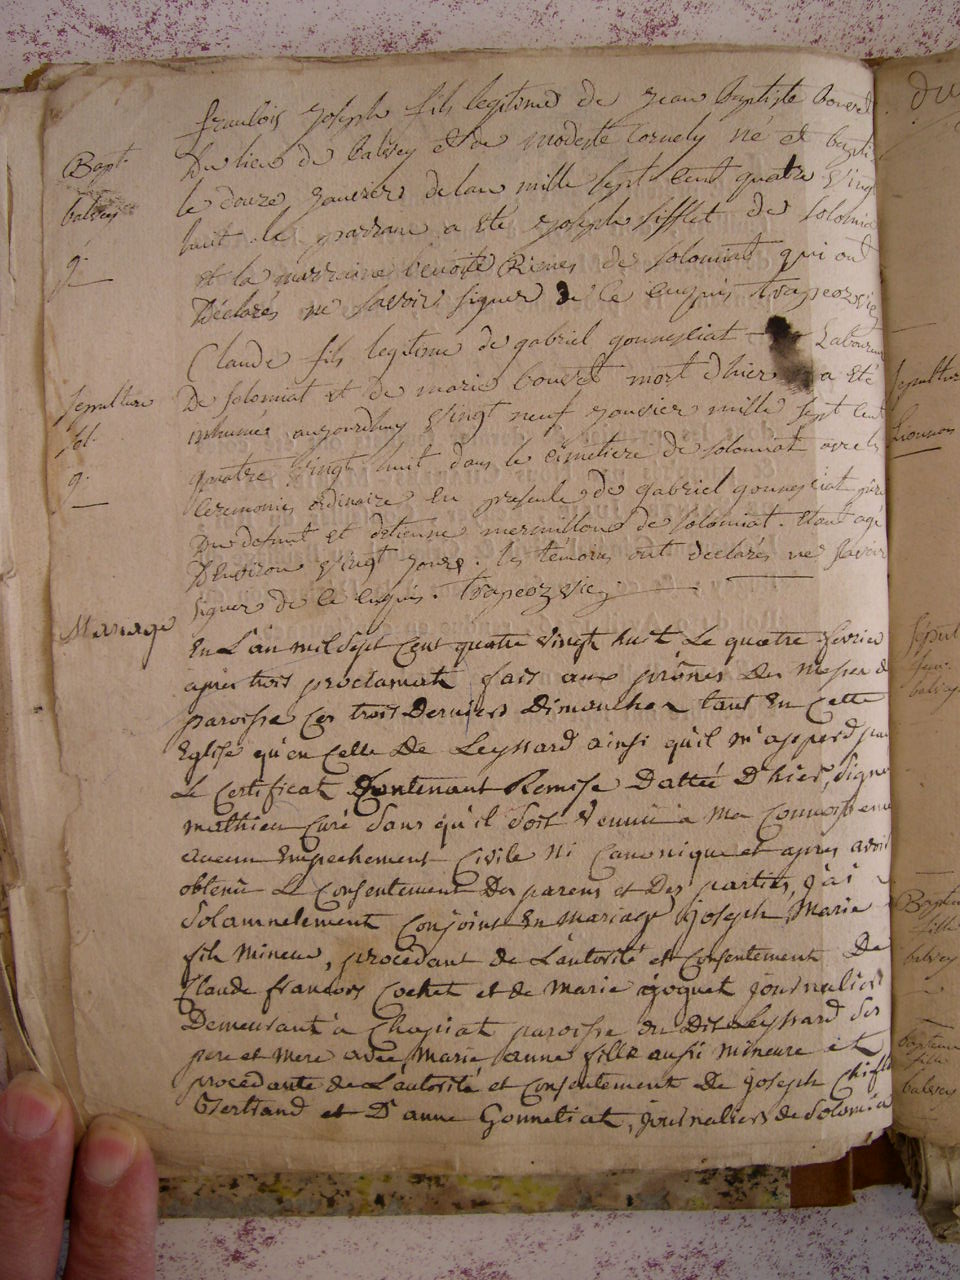 Bapt.
balvey
g.
françois joseph fils legitime de jean baptiste bouvet
du lieu de balvey et de modeste cornely né et bapti
le douze janvier de lan mille sept cent quatre vingt
huit le parrain a été joseph sifflet de solomia
et la marraine benoite de solomiat qui ont
déclarés ne savoir signer de ce enquis trapeoz vic
sepulture
sol.
g.
Claude fils legitime de gabriel gonnessiat Laboureur
de solomiat et de marie bouvet mort d'hier a été
inhumé aujourdhuy vingt neuf janvier mille sept cent
quatre vingt huit dans le cimetiere de solomiat avec les
ceremonies ordinaire en presence de gabriel gonnessiat père
du defunt et detienne mermillon de solomiat. Etant agé
d'environ vingt jours. les témoins ont déclarés ne savoir
signer de ce enquis. trapeoz vic
Mariage
En L'an mil sept cent quatre vingt huit Le quatre fevrier
après trois proclamat fait aux prônes des messes de
paroisse ces trois derniers dimanches tant En cette
Eglise qu'en celle De Leyssard ainsi qu'il m'appert par
Le certificat contenant Remise dattée D'hier, signé
mathieu curé sans qu'il soit venuë à ma connoissance
aucun Empechement civile ni canonique et après avoir
obtenu Le consentement des parens et des parties, j'ai
solamnelement conjoint En mariage joseph Marie
fils mineur, procédant de L'autorité et consentement De
Claude françois cochet et de marie goguet journaliers
Demeurant à Chapiat paroisse du dit Leyssard ses
pere et mere avec marie anne fille aussi mineure et
procédante de L'autorité et consentement De joseph
Bertrand et D'anne Gonnetiat, journaliers de Solomia
du
sepulture
Baptême
fille
balvey
Baptême
fille
balvey